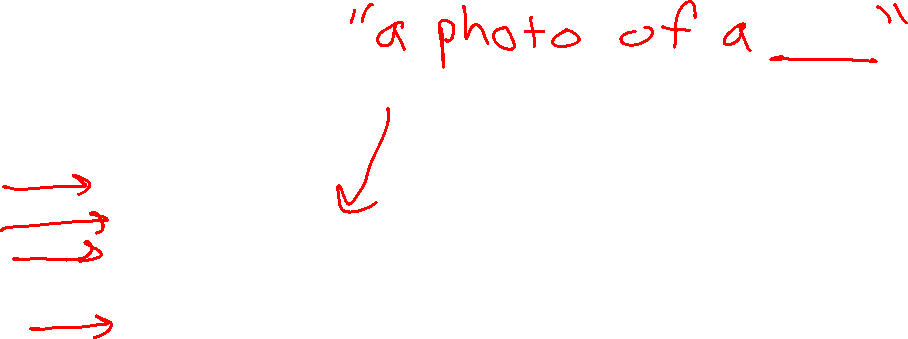 "a photo of a ____"